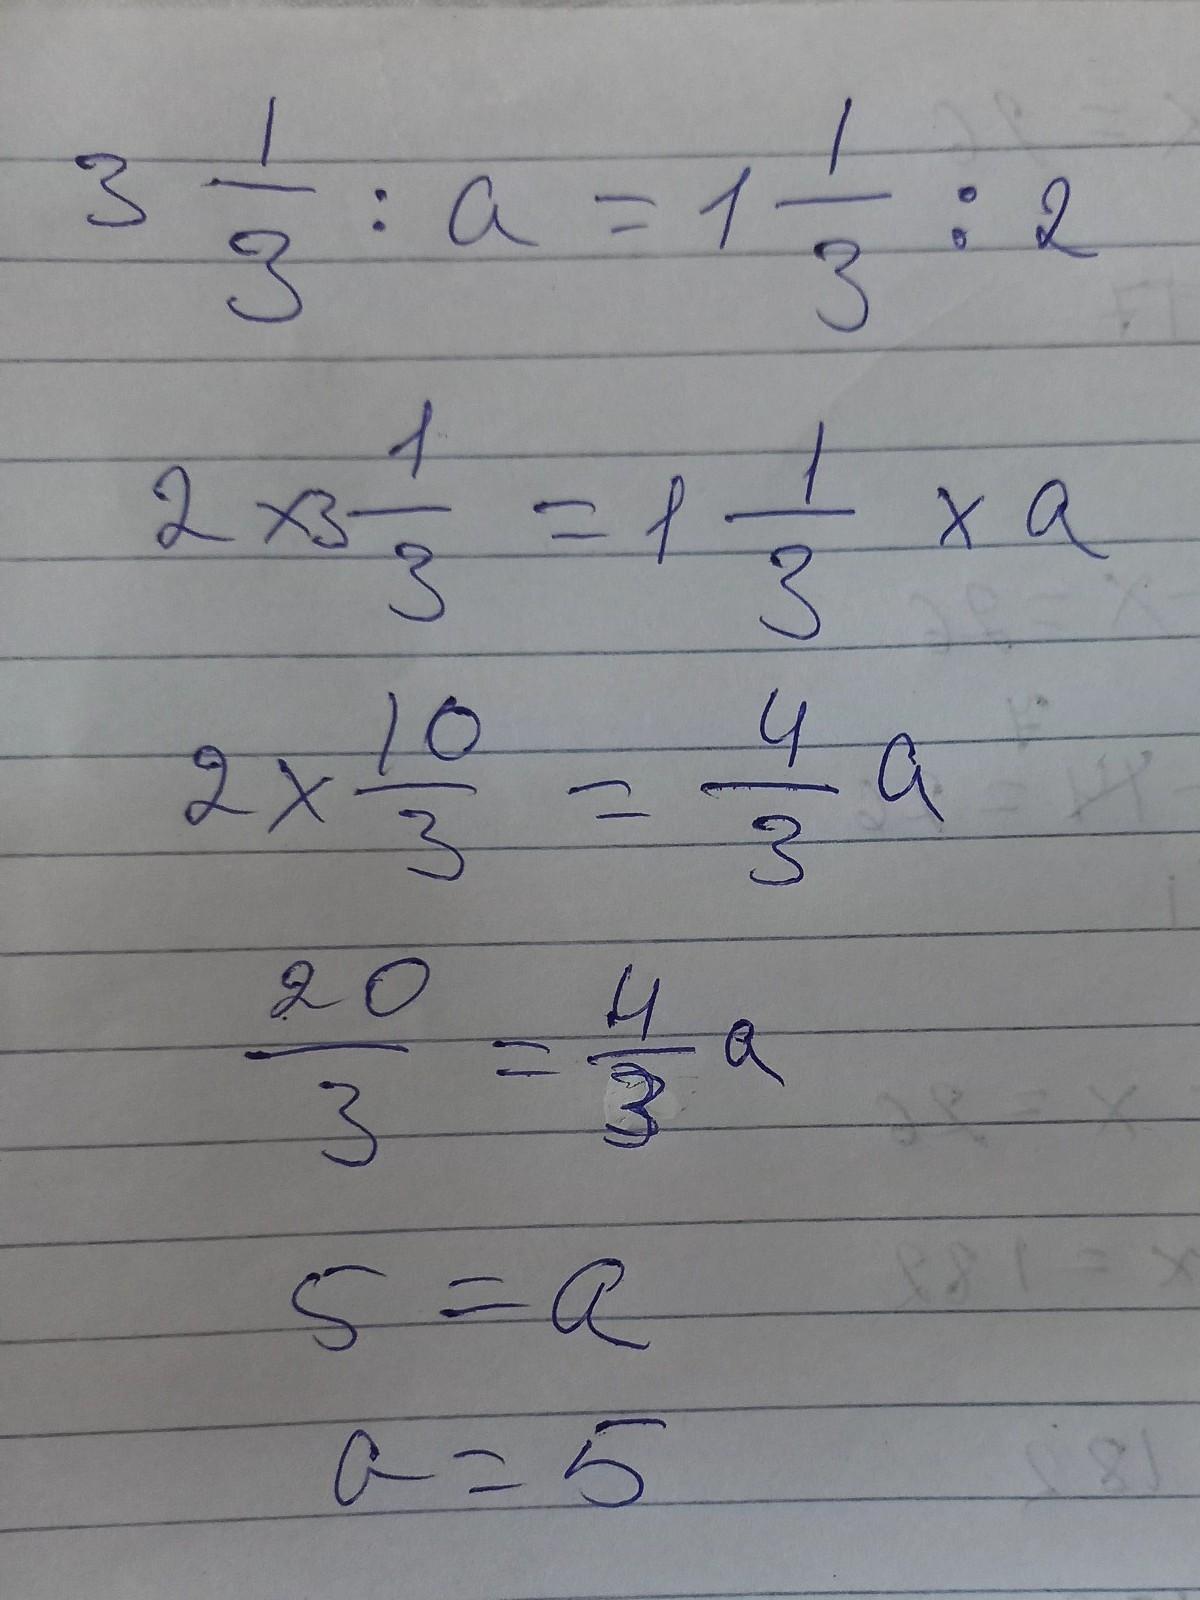 3 1/3 : a = 1 1/3 : 2
2 x 3 1/3 = 1 1/3 x a
2 x 10/3 = 4/3 a
20/3 = 4/3 a
5 = a
a = 5